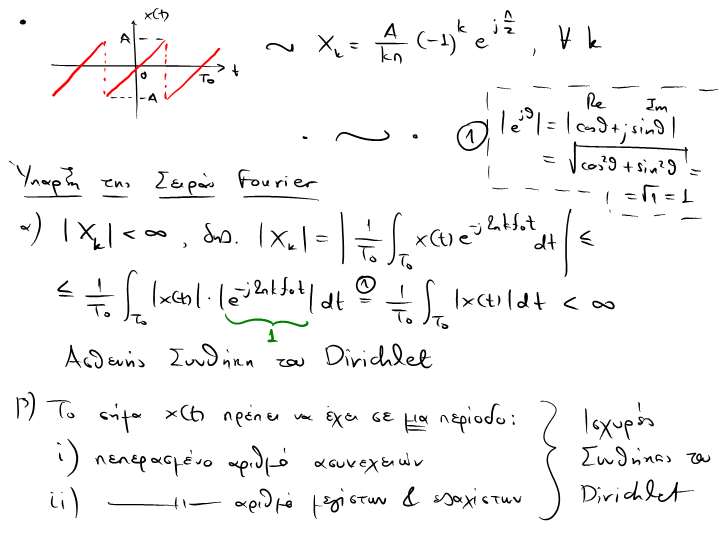 x(t)
A
0
T₀
t
-A
~ X_k = A/(kπ) (-1)^k e^{jπ/2}, ∀ k
· ~ ·
① |e^{jϑ}| = |cosϑ + j sinϑ|
Re Im
= √(cos²ϑ + sin²ϑ) =
= √1 = 1
Ύπαρξη της Σειράς Fourier
α) |X_k| < ∞, δηλ. |X_k| = |1/T₀ ∫_{T₀} x(t) e^{-j2πkf₀t} dt| ≤
≤ 1/T₀ ∫_{T₀} |x(t)| · |e^{-j2πkf₀t}| dt =^① 1/T₀ ∫_{T₀} |x(t)| dt < ∞
1
Ασθενής Συνθήκη του Dirichlet
β) Το σήμα x(t) πρέπει να έχει σε μια περίοδο:
i) πεπερασμένο αριθμό ασυνεχειών
ii) —〃— αριθμό μεγίστων & ελαχίστων
Ισχυρές
Συνθήκες του
Dirichlet